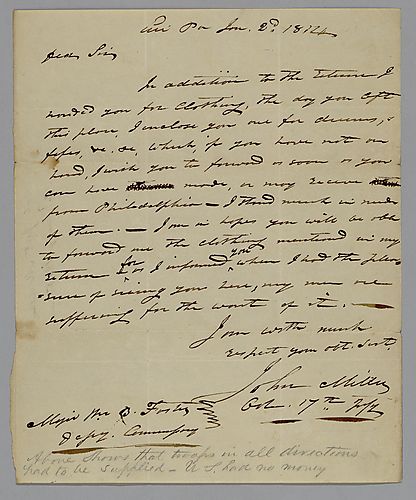 Erie Pa Jan. 2d. 1814
Dear Sir,
In addition to the Return I
handed you for Clothing, the day you left
this place, I inclose you one for drums,
fifes, &c. &c, which, if you have not on
hand, I wish you to forward as soon as you
can have made, or may receive
from Philadelphia — I stand much in need
of them. — I am in hopes you will be able
to forward me the clothing mentioned in my
Return for as I informed you when I had the plea-
-sure of seeing you here, my men are
suffering for the want of it. —
I am with much
respect your obt. Servt.
John Miller
Col. 17th Inft
Major Wm. B. Foster
Depy. Commissary
Above shows that troops in all directions
had to be supplied — U S. had no money